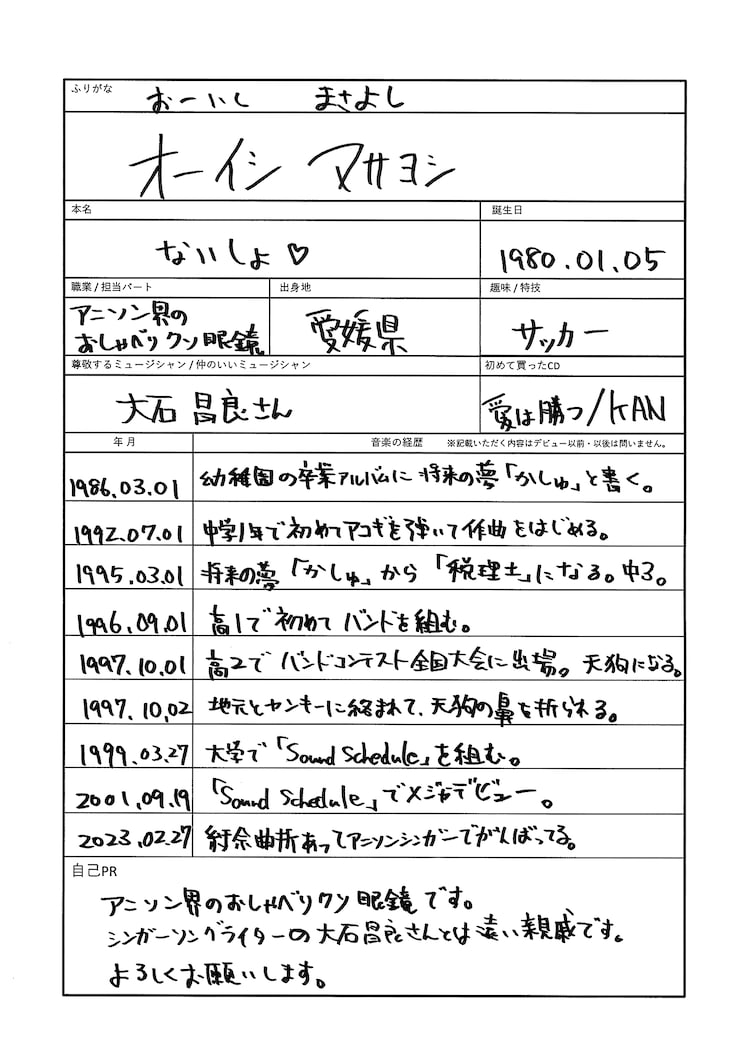 ふりがな おーいし まさよし
オーイシ マサヨシ
本名 誕生日
ないしょ♡ 1980.01.05
職業 / 担当パート 出身地 趣味 / 特技
アニソン界の
おしゃべりクソ眼鏡 愛媛県 サッカー
尊敬するミュージシャン / 仲のいいミュージシャン 初めて買ったCD
大石昌良さん 愛は勝つ/KAN
年月 音楽の経歴 ※記載いただく内容はデビュー以前・以後は問いません。
1986.03.01 幼稚園の卒業アルバムに将来の夢「かしゅ」と書く。
1992.07.01 中学1年で初めてアコギを弾いて作曲をはじめる。
1995.03.01 将来の夢「かしゅ」から「税理士」になる。中3。
1996.09.01 高1で初めてバンドを組む。
1997.10.01 高2でバンドコンテスト全国大会に出場。天狗になる。
1997.10.02 地元とヤンキーに絡まれて、天狗の鼻を折られる。
1999.03.27 大学で「Sound Schedule」を組む。
2001.09.19 「Sound Schedule」でメジャデビュー。
2023.02.27 紆余曲折あってアニソンシンガーでがんばってる。
自己PR
アニソン界のおしゃべりクソ眼鏡です。
シンガーソングライターの大石昌良さんとは遠い親戚です。
よろしくお願いします。